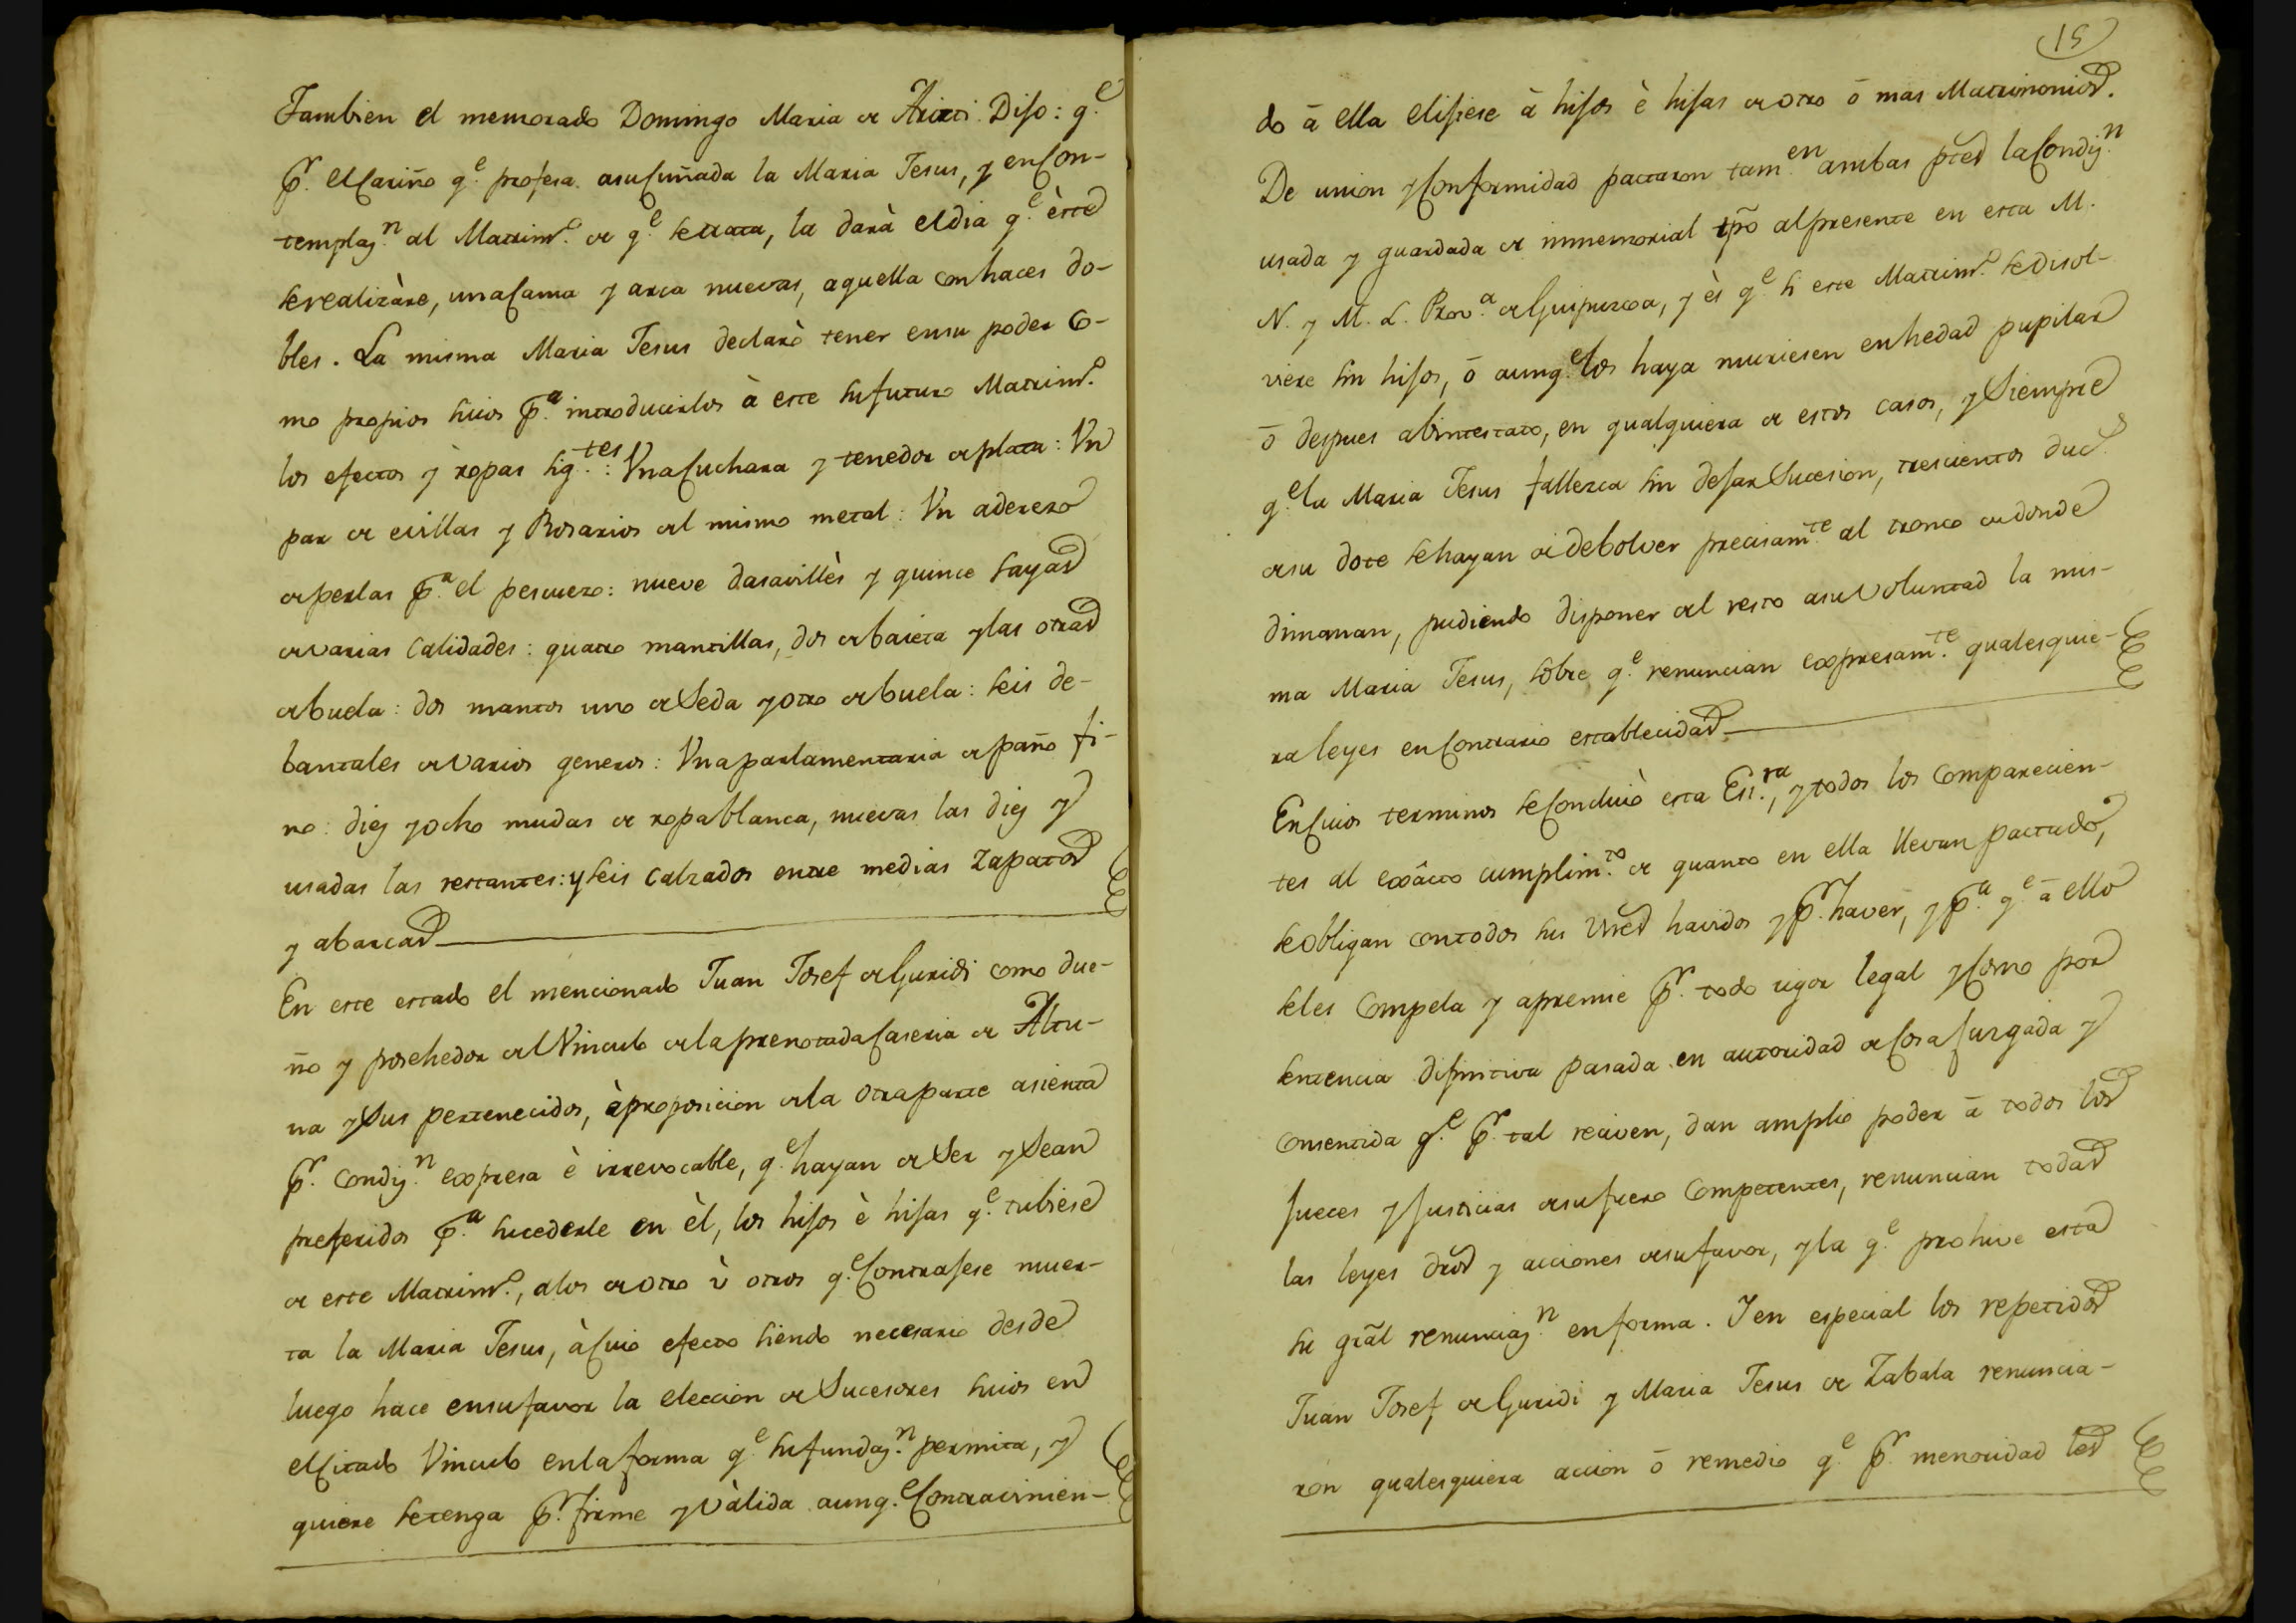 Tambien el memorado Domingo Maria de Arizti Dijo: q.e
p.r el Cariño q.e profesa a su Cuñada la Maria Jesus, y en Con-
templaz.n al Matrim.o de q.e se trata, la dará el dia q.e èste
se realizàre, una Cama y arca nuevas, aquella con haces do-
bles. La misma Maria Jesus declarò tener en su poder co-
mo propios suios p.a introducirlos à este su futuro Matrim.o
los efectos y ropas sig.tes: Una Cuchara y tenedor de plata: Un
par de evillas y Rosarios del mismo metal: Un aderezo
de perlas p.a el pescuezo: nueve dasavillès y quince sayas
de varias Calidades: quatro mantillas, dos de baieta y las otras
de buela: dos mantos uno de Seda y otro de buela: seis de-
bantales de varios generos: Una parlamentaria de paño fi-
no: diez y ocho mudas de ropa blanca, nuevas las diez y
usadas las restantes: y seis Calzados entre medias Zapatos
y abarcas
En este estado el mencionado Juan Josef de Guridi como due-
ño y posehedor del Vinculo de la prenotada Caseria de Altu-
na y Sus pertenecidos, à proposicion de la otra parte asienta
p.r Condiz.n expresa è irrevocable, q.e hayan de Ser y Sean
preferidos p.a sucederle en èl, los hijos è hijas q.e tubiese
de este Matrim.o, a los de otro ù otros q.e Contrajese muer-
ta la Maria Jesus, à Cuio efecto siendo necesario desde
luego hace en su favor la eleccion de Sucesores suios en
el Citado Vinculo en la forma q.e su fundaz.n permita, y
quiere se tenga p.r firme y vàlida aunq.e Contravinien-
15
do ā ella elijiese à hijos è hijas de otro ō mas Matrimonios.
De union y Conformidad pactaron tam.en ambas ptes la Condiz.n
usada y guardada de inmemorial tpõ al presente en esta M.
N. y M. L. Prov.a de Guipuzcoa, y ès q.e si este Matrim.o se disol-
viere sin hijos, ō aunq.e los haya muriesen en hedad pupilar
ō despues abintestato, en qualquiera de estos casos, y Siempre
q.e la Maria Jesus fallezca sin dejar Sucesion, trescientos duc.s
de su dote se hayan de debolver precisam.te al tronco de donde
dimanan, pudiendo disponer del resto a su voluntad la mis-
ma Maria Jesus, sobre q.e renuncian expresam.te qualesquie-
ra leyes en Contrario establecidas
En Cuios terminos se Concluiò esta Ess.ra, y todos los Comparecien-
tes al exâcto cumplim.to de quanto en ella llevan pactado,
se obligan con todos sus vnes havidos y p.r haver, y p.a q.e ā ello
se les Compela y apremie p.r todo rigor legal y Como por
sentencia difinitiva pasada en autoridad de Cosa Juzgada y
consentida q.e p.r tal reciven, dan amplio poder ā todos los
Jueces y Justicias de su fuero Competentes, renuncian todas
las leyes dros y acciones de su favor, y la q.e prohive esta
su grãl renunciaz.n en forma. Y en especial los repetidos
Juan Josef de Guridi y Maria Jesus de Zabala renuncia-
ron qualesquiera accion ō remedio q.e p.r menoridad les